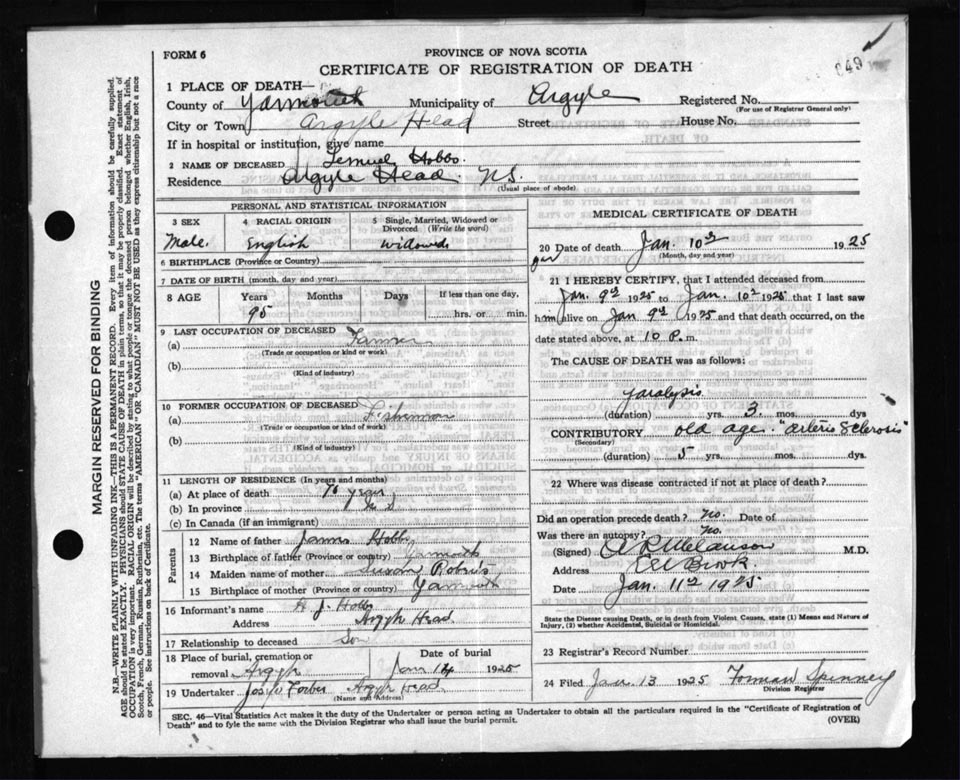 049
FORM 6
PROVINCE OF NOVA SCOTIA
CERTIFICATE OF REGISTRATION OF DEATH
1 PLACE OF DEATH—
County of Yarmouth Municipality of Argyle Registered No.
(For use of Registrar General only)
City or Town Argyle Head Street House No.
If in hospital or institution, give name
2 NAME OF DECEASED Lemuel Hobbs.
Residence Argyle Head. N.S.
(Usual place of abode)
PERSONAL AND STATISTICAL INFORMATION
3 SEX 4 RACIAL ORIGIN 5 Single, Married, Widowed or Divorced (Write the word)
Male. English Widowed
6 BIRTHPLACE (Province or Country)
7 DATE OF BIRTH (month, day and year)
8 AGE Years Months Days If less than one day,
95 hrs. or min.
9 LAST OCCUPATION OF DECEASED
(a) Farmer
(Trade or occupation or kind or work)
(b)
(Kind of industry)
10 FORMER OCCUPATION OF DECEASED
(a) Fisherman
(Trade or occupation or kind of work)
(b)
(Kind of industry)
11 LENGTH OF RESIDENCE (In years and months)
(a) At place of death 70 years
(b) In province
(c) In Canada (if an immigrant)
Parents
12 Name of father James Hobbs
13 Birthplace of father (Province or country) Yarmouth
14 Maiden name of mother Susan
15 Birthplace of mother (Province or country) Yarmouth
16 Informant's name J. Hobbs
Address Argyle Head
17 Relationship to deceased Son
18 Place of burial, cremation or removal Argyle Date of burial Jan 14 1925
19 Undertaker Forbes Argyle Head
(Name and Address)
MEDICAL CERTIFICATE OF DEATH
20 Date of death Jan. 10th 1925
(Month, day and year)
21 I HEREBY CERTIFY, that I attended deceased from
Jan. 9th 1925 to Jan. 10th 1925 that I last saw
him alive on Jan. 9th 1925 and that death occurred, on
date stated above, at 10 P. m.
The CAUSE OF DEATH was as follows:
Paralysis
(duration) yrs. 3 mos. dys
CONTRIBUTORY old age. "Arterio Sclerosis"
(Secondary)
(duration) 5 yrs. mos. dys.
22 Where was disease contracted if not at place of death?
Did an operation precede death? no. Date of
Was there an autopsy? No.
(Signed) A R Melanson M.D.
Address Brook
Date Jan. 11th 1925
State the Disease causing Death, or in death from Violent Causes, state (1) Means and Nature of Injury, (2) whether Accidental, Suicidal or Homicidal.
23 Registrar's Record Number
24 Filed Jan. 13 1925 Forman Spinney
Division Registrar
SEC. 46—Vital Statistics Act makes it the duty of the Undertaker or person acting as Undertaker to obtain all the particulars required in the "Certificate of Registration of
Death" and to fyle the same with the Division Registrar who shall issue the burial permit. (OVER)
MARGIN RESERVED FOR BINDING
N.B.—WRITE PLAINLY WITH UNFADING INK—THIS IS A PERMANENT RECORD. Every item of information should be carefully supplied.
AGE should be stated EXACTLY. PHYSICIANS should STATE CAUSE OF DEATH in plain terms, so that it may be properly classified. Exact statement of
OCCUPATION is very important. RACIAL ORIGIN will be described by stating to what people or tongue the deceased person belonged, whether English, Irish,
Scotch, French, German, Russian, Ruthenian, etc. The terms "AMERICAN" OR "CANADIAN" MUST NOT BE USED as they express citizenship but not a race
or people. See instructions on back of Certificate.